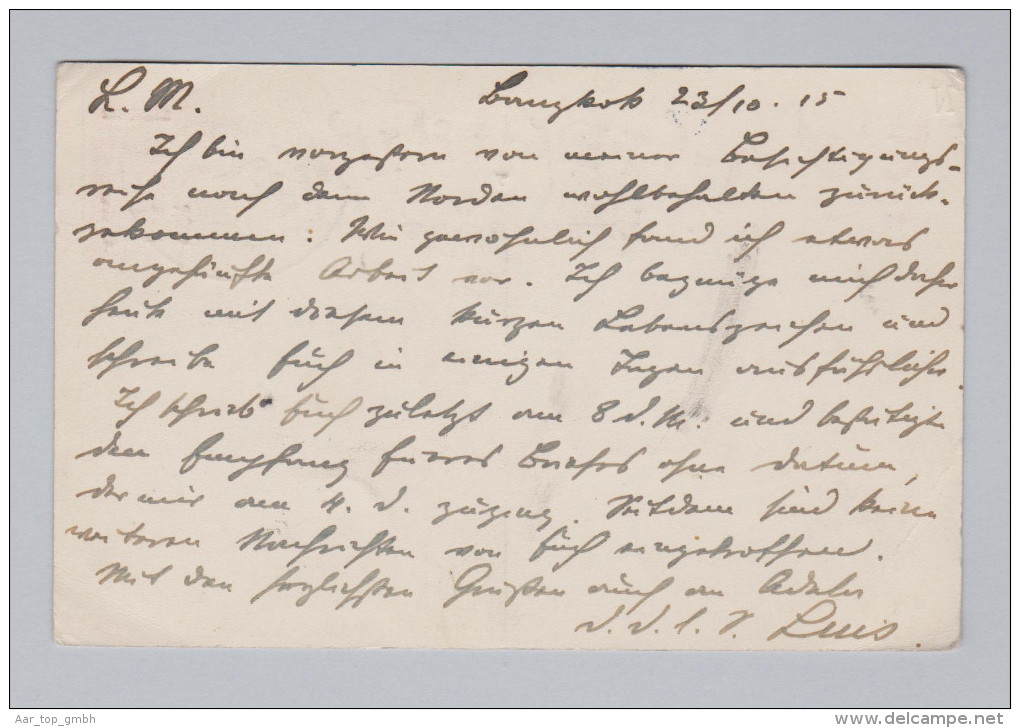 L. M. Bangkok 23/10. 15
Ich bin vorgestern von meiner Besichtigungs-
reise nach dem Norden wohlbehalten zurück-
gekommen. Wie gewöhnlich fand ich etwas
angehäufte Arbeit vor. Ich begnüge mich daher
heute mit diesem kurzen Lebenszeichen und
schreibe Euch in einigen Tagen ausführlicher.
Ich schrieb Euch zuletzt am 8 d. M. und bestätigte
den Empfang Eueres Briefes ohne Datum,
der mir am 4. d. zuging. Seitdem sind keine
weiteren Nachrichten von Euch eingetroffen.
Mit den herzlichsten Grüßen auch an Adele
d. d. l. S. Luis
Aar_top_gmbh
www.delcampe.net